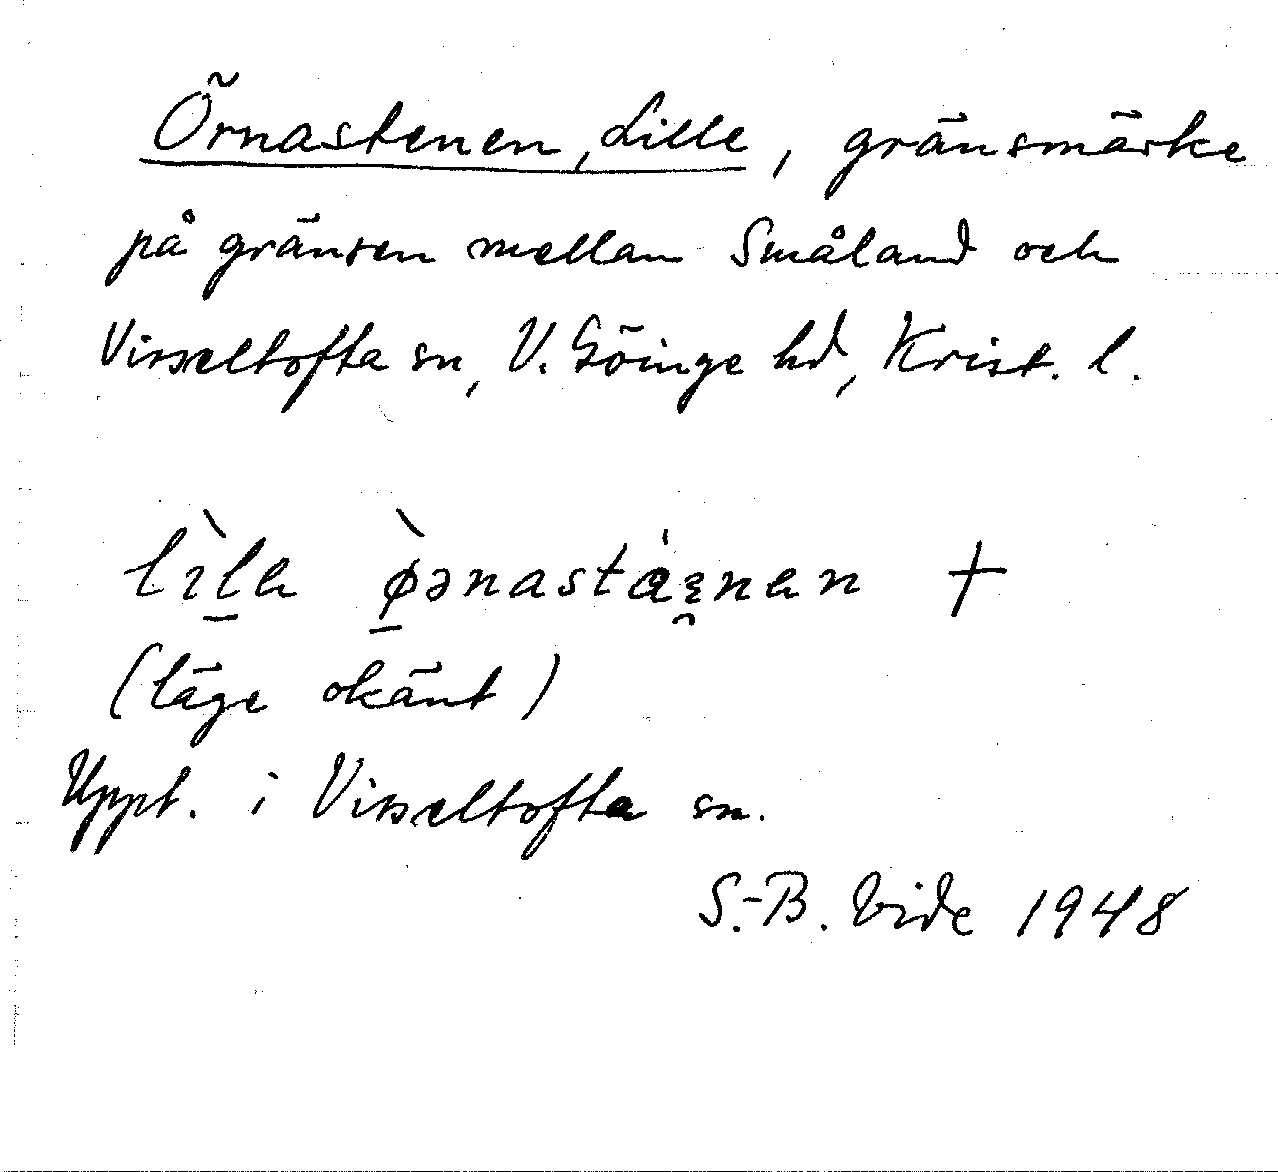 Örnastenen, Lille, gränsmärke
på gränsen mellan Småland och
Visseltofta sn, V. Göinge hd, Krist. l.
lìl̠a ø̠̀ənastáe̯nan +
(läge okänt)
Uppt. i Visseltofta sn.
S.-B. Vide 1948